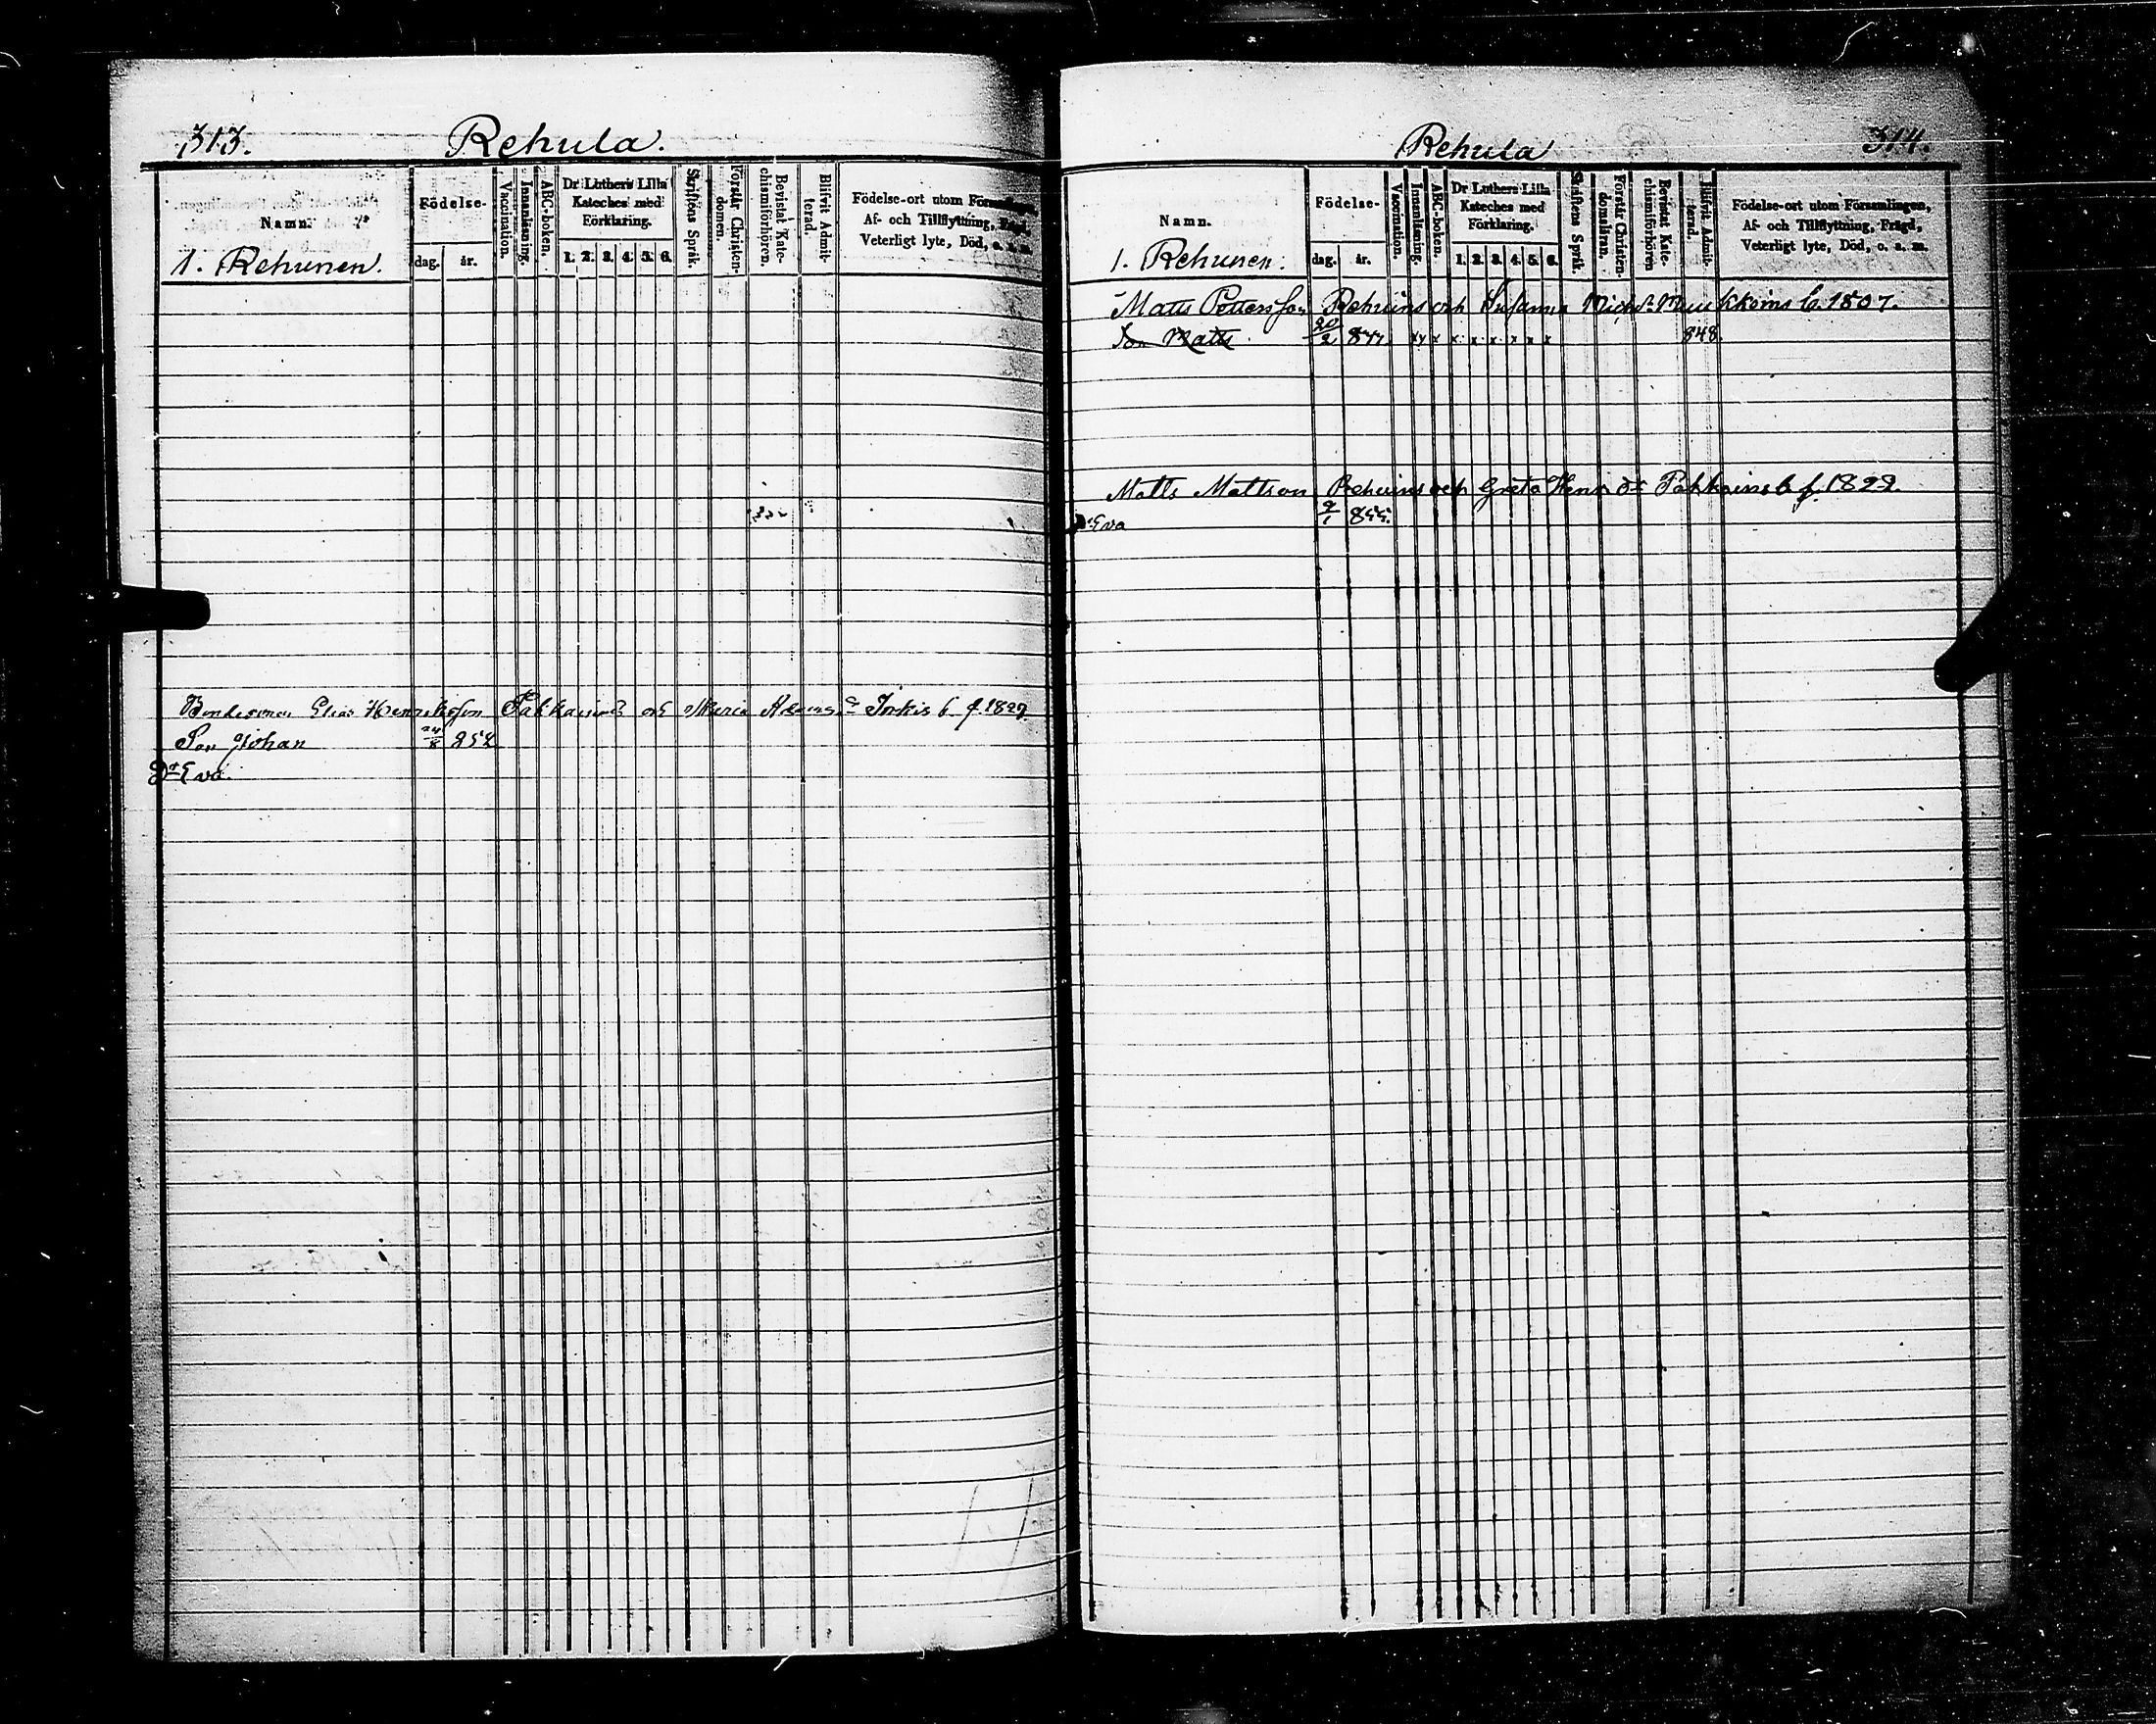 313. Rehula.
Namn.
Födelse-
dag. år.
Vaccination.
Innanläsning.
ABC-boken.
Dr Luthers Lilla Kateches med Förklaring.
1. 2. 3. 4. 5. 6.
Skriftens Språk.
Förstår Christen-domen.
Bevistat Kate-chismiförhören.
Blifvit Admit-terad.
Födelse-ort utom Församlingen,
Af- och Tillflyttning, Frägd,
Veterligt lyte, Död, o. s. m.
1. Rehunen.
Elias Henriksson Pakkains och Maria Irkis b. f. 1829.
Son Johan 24/8 852
Dr Eva.
Rehula 314.
Namn.
Födelse-
dag. år.
Vaccination.
Innanläsning.
ABC-boken.
Dr Luthers Lilla Kateches med Förklaring.
1. 2. 3. 4. 5. 6.
Skriftens Språk.
Förstår Christen-domsläran.
Bevistat Kate-chismiförhören
Blifvit Admit-terad.
Födelse-ort utom Församlingen,
Af- och Tillflyttning, Frägd,
Veterligt lyte, Död, o. s. m.
1. Rehunen.
Matts Pettersson Rehuins och Susanna Michs. b. 1807.
Son Matts 20/2 x x x x x x x x 848.
Matts Mattson Rehuins och Greta Henr dr Pakkains b f. 1822.
Dr Eva 9/1 855.